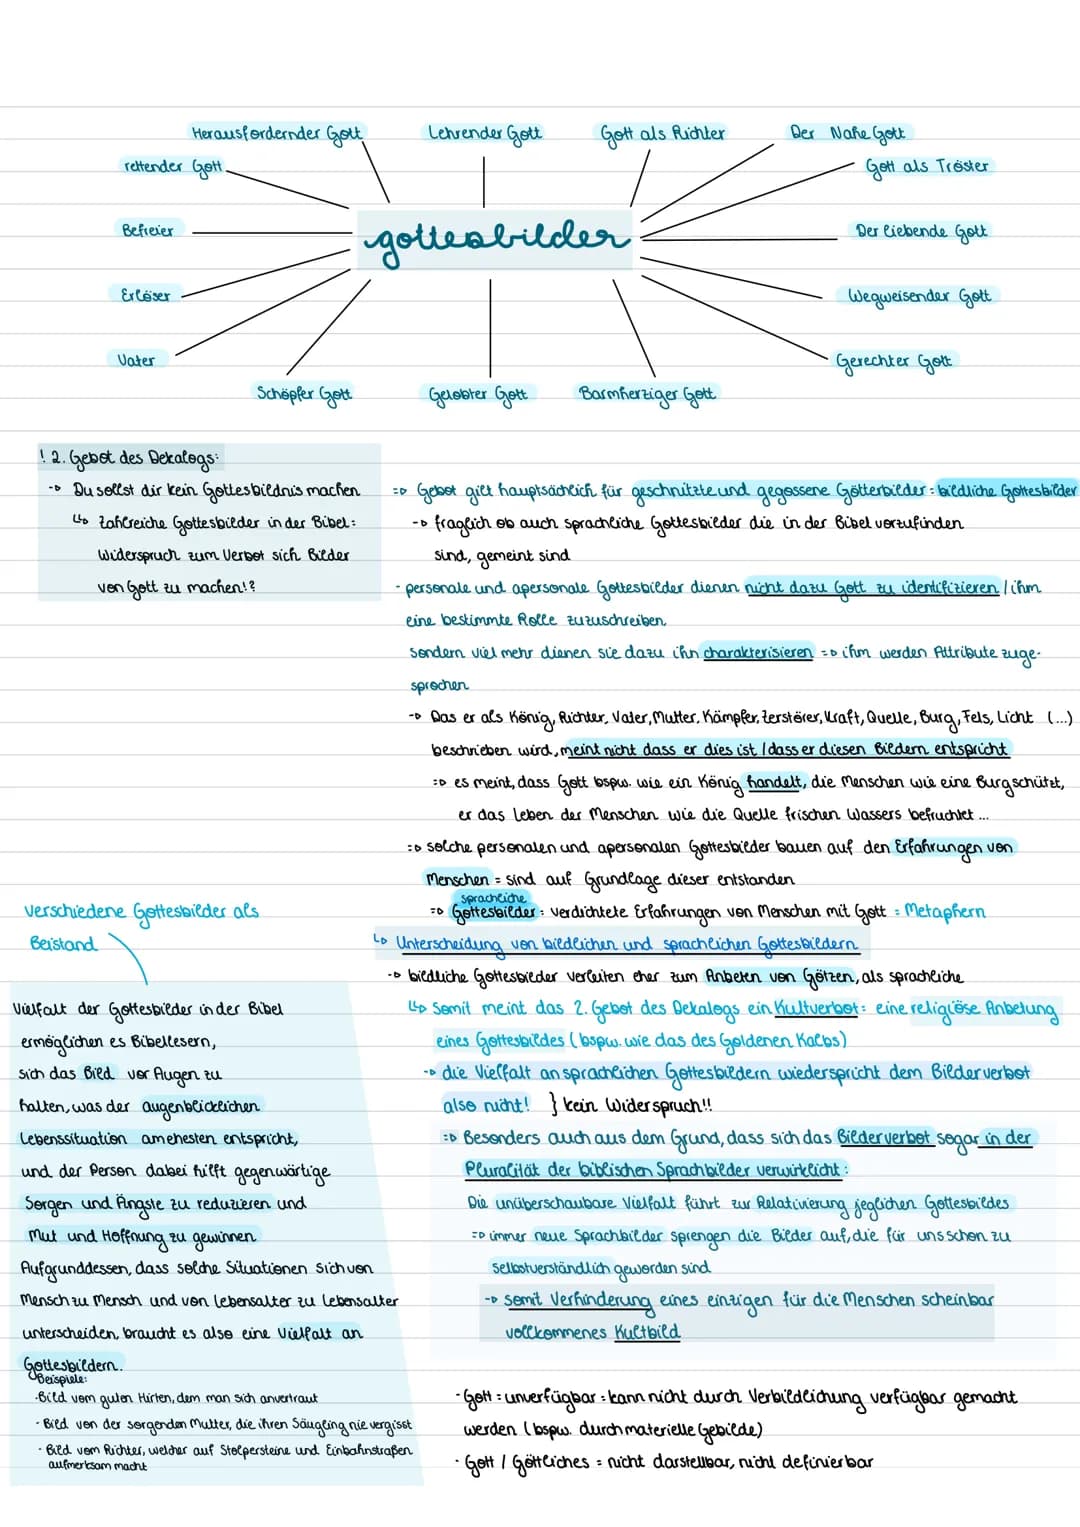 Herausfordernder Gott
Lehrender Gott
Gott als Richter
Der Nahe Gott
rettender Gott
Gott als Tröster
Befreier
gottesbilder
Der liebende Gott
Erlöser
Wegweisender Gott
Vater
Gerechter Gott
Schöpfer Gott
Gelobter Gott
Barmherziger Gott
! 2. Gebot des Dekalogs:
-> Du sollst dir kein Gottesbildnis machen
↳ Zahlreiche Gottesbilder in der Bibel:
Widerspruch zum Verbot sich Bilder
von Gott zu machen!?
=> Gebot gilt hauptsächlich für geschnitzte und gegossene Götterbilder = bildliche Gottesbilder
-> fraglich ob auch sprachliche Gottesbilder die in der Bibel vorzufinden
sind, gemeint sind
- personale und apersonale Gottesbilder dienen nicht dazu Gott zu identifizieren / ihm
eine bestimmte Rolle zuzuschreiben,
sondern viel mehr dienen sie dazu ihn charakterisieren => ihm werden Attribute zuge-
sprochen
-> Das er als König, Richter, Vater, Mutter, Kämpfer, Zerstörer, Kraft, Quelle, Burg, Fels, Licht (...)
beschrieben wird, meint nicht dass er dies ist / dass er diesen Bildern entspricht
=> es meint, dass Gott bspw. wie ein König handelt, die Menschen wie eine Burg schützt,
er das Leben der Menschen wie die Quelle frischen Wassers befruchtet ...
=> solche personalen und apersonalen Gottesbilder bauen auf den Erfahrungen von
Menschen = sind auf Grundlage dieser entstanden
sprachliche
=> Gottesbilder = verdichtete Erfahrungen von Menschen mit Gott = Metaphern
↳ Unterscheidung von bildlichen und sprachlichen Gottesbildern
-> bildliche Gottesbilder verleiten eher zum Anbeten von Götzen, als sprachliche
↳ Somit meint das 2. Gebot des Dekalogs ein Kultverbot: eine religiöse Anbetung
eines Gottesbildes (bspw. wie das des Goldenen Kalbs)
-> die Vielfalt an sprachlichen Gottesbildern wiederspricht dem Bilderverbot
also nicht! } kein Widerspruch!!
=> Besonders auch aus dem Grund, dass sich das Bilderverbot sogar in der
Pluralität der biblischen Sprachbilder verwirklicht:
Die unüberschaubare Vielfalt führt zur Relativierung jeglichen Gottesbildes
=> immer neue Sprachbilder sprengen die Bilder auf, die für uns schon zu
selbstverständlich geworden sind
-> somit Verhinderung eines einzigen für die Menschen scheinbar
vollkommenes Kultbild
- Gott = unverfügbar = kann nicht durch Verbildlichung verfügbar gemacht
werden (bspw. durch materielle Gebilde)
- Gott / Göttliches = nicht darstellbar, nicht definierbar
verschiedene Gottesbilder als
Beistand
Vielfalt der Gottesbilder in der Bibel
ermöglichen es Bibellesern,
sich das Bild vor Augen zu
halten, was der augenblicklichen
Lebenssituation am ehesten entspricht,
und der Person dabei hilft gegenwärtige
Sorgen und Ängste zu reduzieren und
Mut und Hoffnung zu gewinnen
Aufgrunddessen, dass solche Situationen sich von
Mensch zu Mensch und von Lebensalter zu Lebensalter
unterscheiden, braucht es also eine Vielfalt an
Gottesbildern.
Beispiele:
- Bild vom guten Hirten, dem man sich anvertraut
- Bild von der sorgenden Mutter, die ihren Säugling nie vergisst
- Bild vom Richter, welcher auf Stolpersteine und Einbahnstraßen
aufmerksam macht